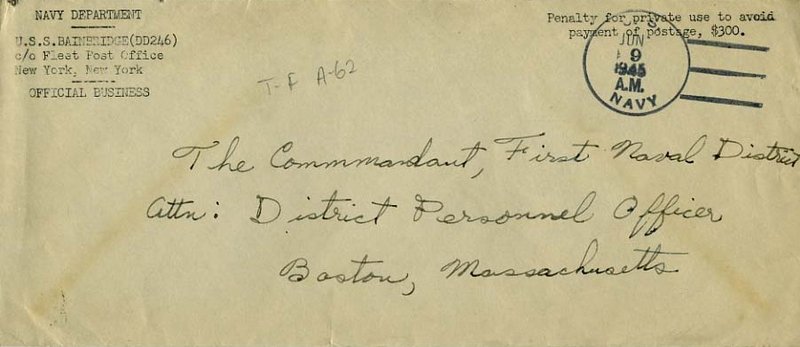 NAVY DEPARTMENT
U.S.S.BAINBRIDGE(DD246)
c/o Fleet Post Office
New York, New York
OFFICIAL BUSINESS
Penalty for private use to avoid
payment of postage, $300.
U.S.
JUN
9
1945
A.M.
NAVY
T-F A-62
The Commmandant, First Naval District
Attn: District Personnel Officer
Boston, Massachusetts